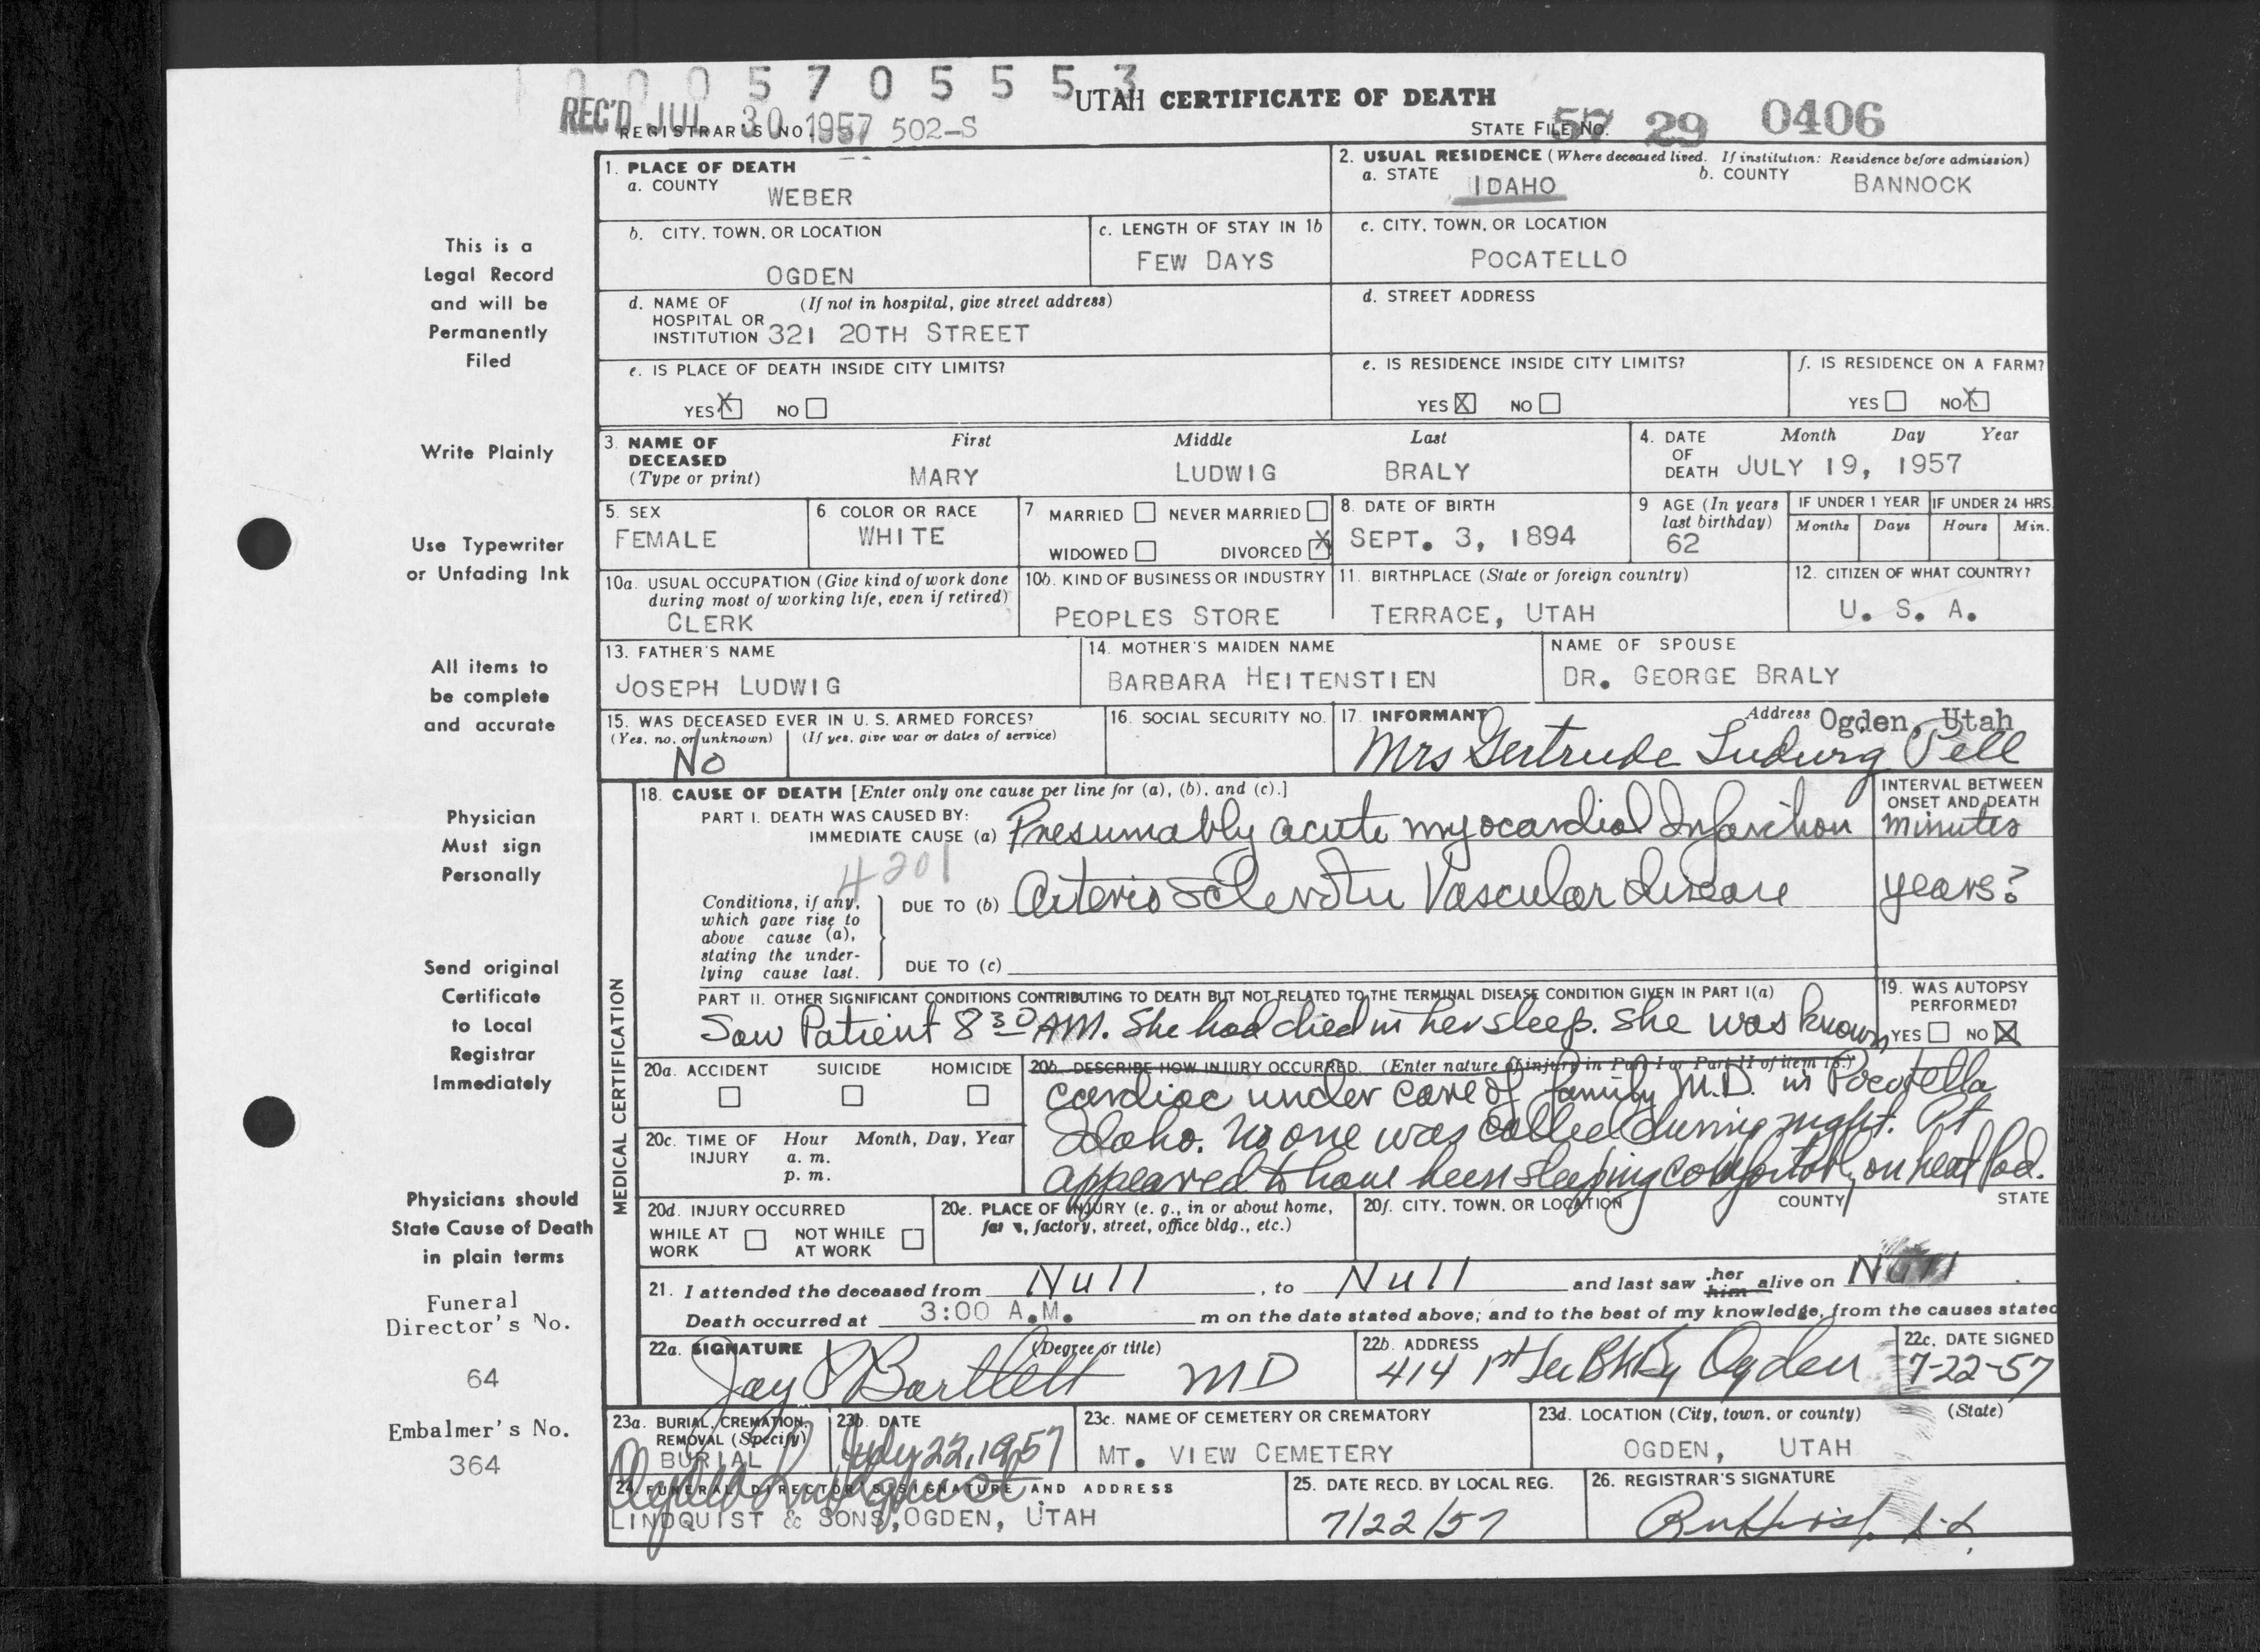 1 0 0 0 5 7 0 5 5 5 3
UTAH CERTIFICATE OF DEATH
REC'D JUL 30 1957
REGISTRAR'S NO. 502-S
STATE FILE NO. 57 29 0406
This is a
Legal Record
and will be
Permanently
Filed
Write Plainly
Use Typewriter
or Unfading Ink
All items to
be complete
and accurate
Physician
Must sign
Personally
Send original
Certificate
to Local
Registrar
Immediately
Physicians should
State Cause of Death
in plain terms
Funeral
Director's No.
64
Embalmer's No.
364
1. PLACE OF DEATH
a. COUNTY
WEBER
2. USUAL RESIDENCE (Where deceased lived. If institution: Residence before admission)
a. STATE IDAHO b. COUNTY BANNOCK
b. CITY, TOWN, OR LOCATION
OGDEN
c. LENGTH OF STAY IN 1b
FEW DAYS
c. CITY, TOWN, OR LOCATION
POCATELLO
d. NAME OF (If not in hospital, give street address)
HOSPITAL OR
INSTITUTION 321 20TH STREET
d. STREET ADDRESS
e. IS PLACE OF DEATH INSIDE CITY LIMITS?
YES X NO
e. IS RESIDENCE INSIDE CITY LIMITS?
YES X NO
f. IS RESIDENCE ON A FARM?
YES NO X
3. NAME OF DECEASED (Type or print)
First Middle Last
MARY LUDWIG BRALY
4. DATE OF DEATH
Month Day Year
JULY 19, 1957
5. SEX
FEMALE
6. COLOR OR RACE
WHITE
7 MARRIED NEVER MARRIED
WIDOWED DIVORCED X
8. DATE OF BIRTH
SEPT. 3, 1894
9 AGE (In years last birthday)
62
IF UNDER 1 YEAR IF UNDER 24 HRS.
Months Days Hours Min.
10a. USUAL OCCUPATION (Give kind of work done
during most of working life, even if retired)
CLERK
10b. KIND OF BUSINESS OR INDUSTRY
PEOPLES STORE
11. BIRTHPLACE (State or foreign country)
TERRACE, UTAH
12. CITIZEN OF WHAT COUNTRY?
U. S. A.
13. FATHER'S NAME
JOSEPH LUDWIG
14. MOTHER'S MAIDEN NAME
BARBARA HEITENSTIEN
NAME OF SPOUSE
DR. GEORGE BRALY
15. WAS DECEASED EVER IN U. S. ARMED FORCES?
(Yes, no, or unknown) (If yes, give war or dates of service)
No
16. SOCIAL SECURITY NO.
17. INFORMANT Address Ogden, Utah
Mrs Gertrude Ludwig Pell
MEDICAL CERTIFICATION
18. CAUSE OF DEATH [Enter only one cause per line for (a), (b), and (c).]
INTERVAL BETWEEN
ONSET AND DEATH
PART I. DEATH WAS CAUSED BY:
IMMEDIATE CAUSE (a) Presumably acute myocardial Infarction minutes
4201
Conditions, if any,
which gave rise to
above cause (a),
stating the under-
lying cause last.
DUE TO (b) Arterio Sclerotic Vascular disease years?
DUE TO (c)
PART II. OTHER SIGNIFICANT CONDITIONS CONTRIBUTING TO DEATH BUT NOT RELATED TO THE TERMINAL DISEASE CONDITION GIVEN IN PART I(a)
Saw Patient 8 30 AM. She had died in her sleep. She was known
19. WAS AUTOPSY
PERFORMED?
YES NO X
20a. ACCIDENT SUICIDE HOMICIDE
20b. DESCRIBE HOW INJURY OCCURRED. (Enter nature of injury in Part I or Part II of item 18.)
cardiac under care of family M.D. in Pocatella
Idaho. No one was called during night. Pt
appeared to have been sleeping comfortably on heat pad.
20c. TIME OF INJURY Hour Month, Day, Year
a. m.
p. m.
20d. INJURY OCCURRED
WHILE AT WORK NOT WHILE AT WORK
20e. PLACE OF INJURY (e. g., in or about home,
farm, factory, street, office bldg., etc.)
20f. CITY, TOWN, OR LOCATION COUNTY STATE
21. I attended the deceased from Null, to Null and last saw her him alive on Null.
Death occurred at 3:00 A.M. m on the date stated above; and to the best of my knowledge, from the causes stated
22a. SIGNATURE (Degree or title)
Jay Bartlett MD
22b. ADDRESS
414 1st Ogden
22c. DATE SIGNED
7-22-57
23a. BURIAL, CREMATION,
REMOVAL (Specify)
BURIAL
23b. DATE
July 22, 1957
23c. NAME OF CEMETERY OR CREMATORY
MT. VIEW CEMETERY
23d. LOCATION (City, town, or county) (State)
OGDEN, UTAH
24. FUNERAL DIRECTOR'S SIGNATURE AND ADDRESS
LINDQUIST & SONS, OGDEN, UTAH
25. DATE RECD. BY LOCAL REG.
7/22/57
26. REGISTRAR'S SIGNATURE